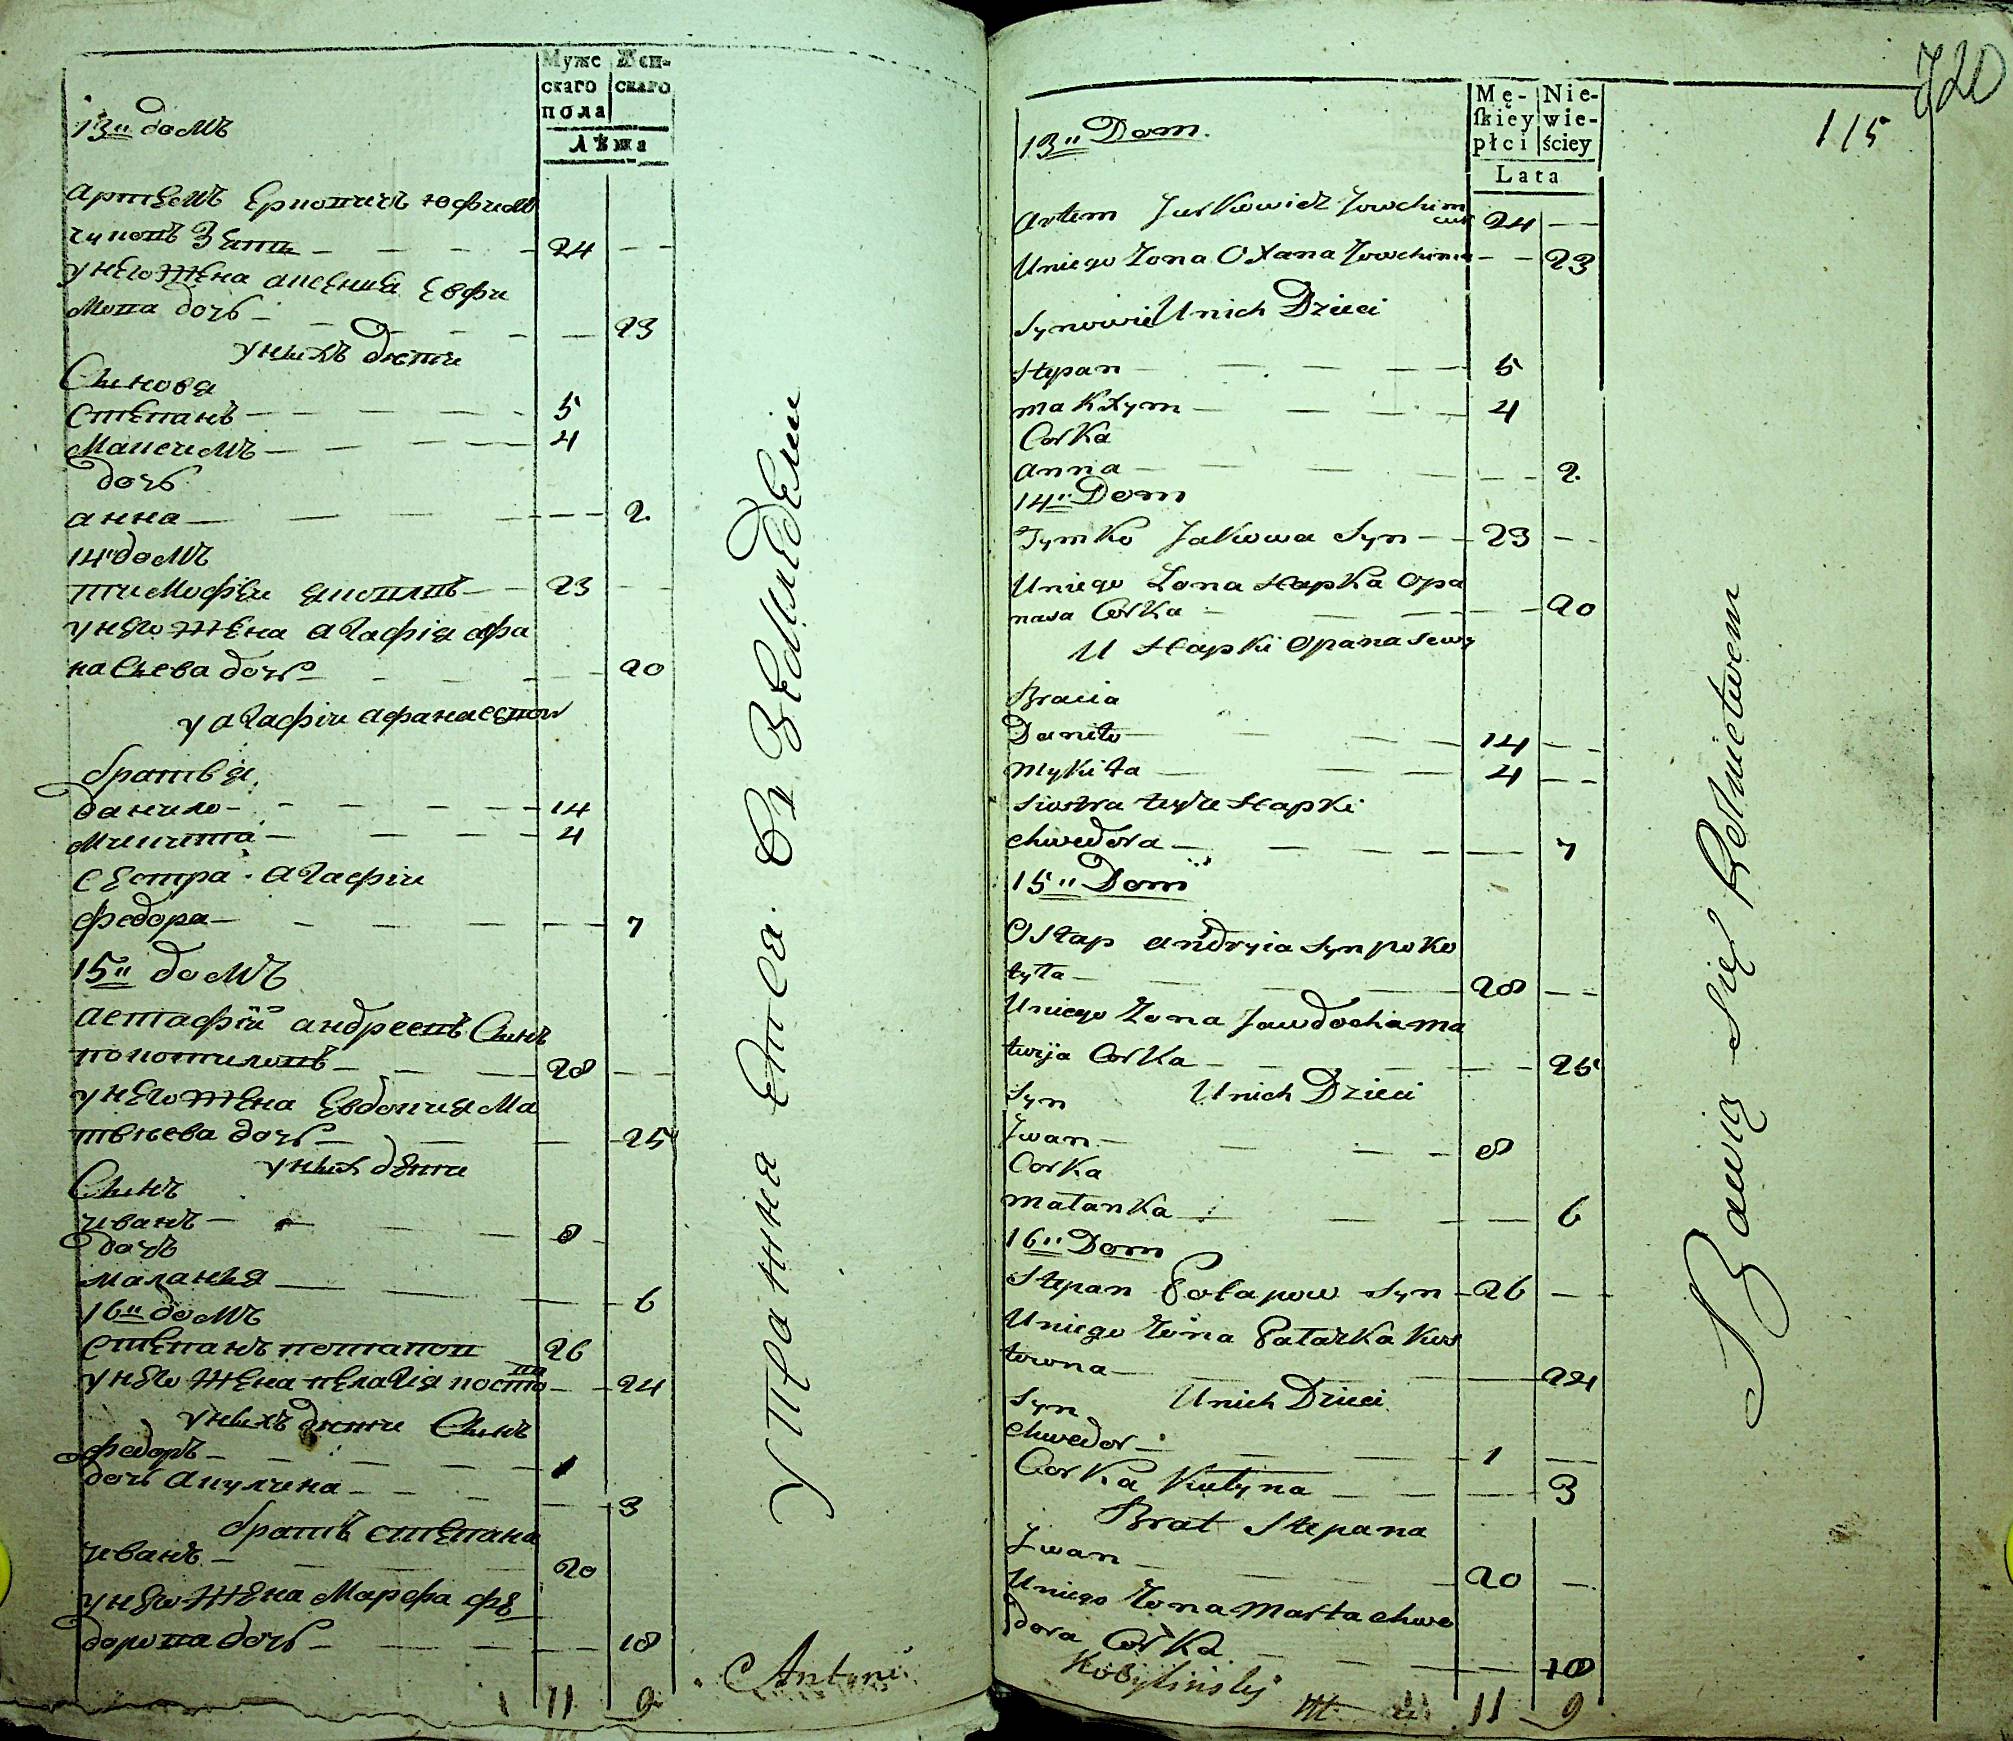 Муже
скаго
пола
Жен-
скаго
Лѣта
13" домъ
артемъ юрковичъ юфим
чуковъ зять 24
унего жена аксения евфи
мова дочь 23
унихъ дѣти
Синовя
степанъ 5
Максимъ 4
дочь
анна 2
14" домъ
тимофѣи яковлвъ 23
унего жена агафія афа
насиева дочь 20
у агафіи афанасевои
братья
данило 14
микита 4
сестра агафіи
федора 7
15" домъ
астафій андреевъ Синъ
покотиловъ 28
унего жена евдокия ма
твиева дочь 25
уних дѣти
Синъ
иванъ 8
дочъ
маланья 6
16" домъ
степанъ потапов 26
унего жена пелагія косто
ва 24
унихъ дѣти Синъ
федоръ 1
дочь акулина 3
братъ степана
иванъ 20
унего жена Марфа фе
дорова дочь 18
11 9
Упражняется Въ Земледелии
Antoni
720
115
Mę-
skiey
płci
Nie-
wie-
ściey
Lata
13" Dom.
Artem Jurkowicz Jowchim
cuk 24
Uniego Zona Oxana Jowchima 23
Synowie Unich Dzieci
Stepan 5
Makxym 4
Corka
Anna 2
14" Dom
Tymko Jakowa Syn 23
Uniego Zona Hapka Opa
nasa Corka 20
U Hapki Opanasewy
Bracia
Daniło 14
Mykita 4
Siostra teyże Hapki
Chwedora 7
15" Dom
Ostap Andryia Syn poko
tyła 28
Uniego Zona Jawdocha Ma
twija Corka 25
Syn Unich Dzieci
Jwan 8
Corka
Matanka 6
16" Dom
Stepan Potapow Syn 26
Uniego Zona Patazka Kos
towna 24
Syn Unich Dzieci
Chwedor 1
Corka Kulyna 3
Brat Stepana
Jwan 20
Uniego Zona Marta Chwe
dora Corka 18
Kobyliński
11 9
Bawią się Rolnictwem